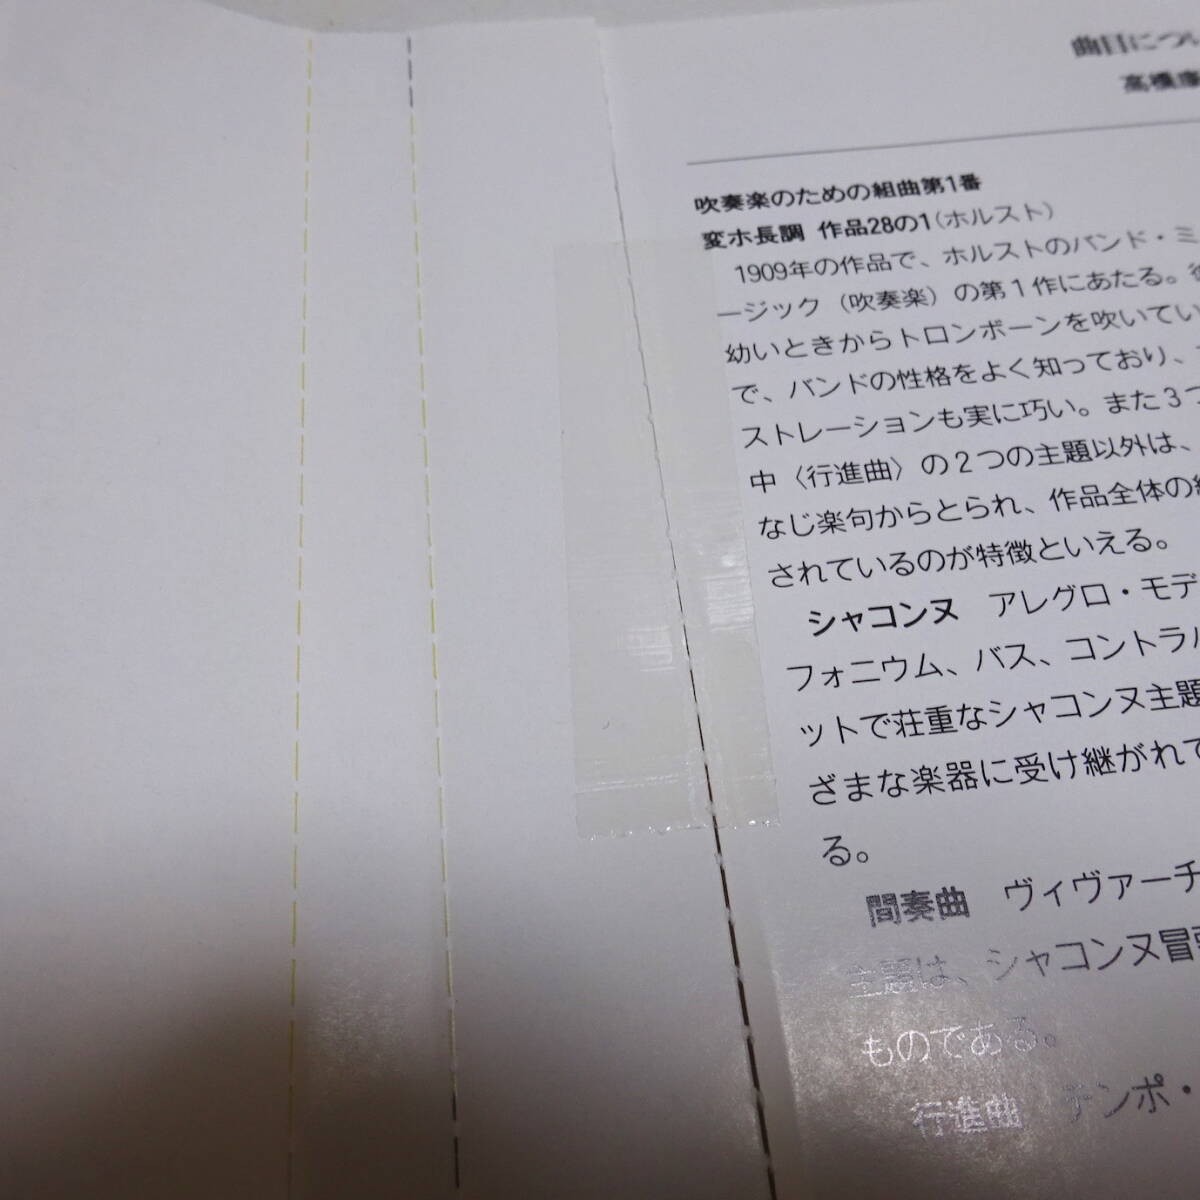 曲目につい
高橋康
吹奏楽のための組曲第1番
変ホ長調 作品28の1(ホルスト)
1909年の作品で、ホルストのバンド・ミュ
ージック(吹奏楽)の第1作にあたる。彼
幼いときからトロンボーンを吹いてい
で、バンドの性格をよく知っており、
ストレーションも実に巧い。また3つ
中〈行進曲〉の2つの主題以外は、
なじ楽句からとられ、作品全体の
されているのが特徴といえる。
シャコンヌ アレグロ・モデ
フォニウム、バス、コントラ
ットで荘重なシャコンヌ主題
ざまな楽器に受け継がれて
る。
間奏曲 ヴィヴァーチ
主題は、シャコンヌ冒頭
ものである。
行進曲 テンポ・